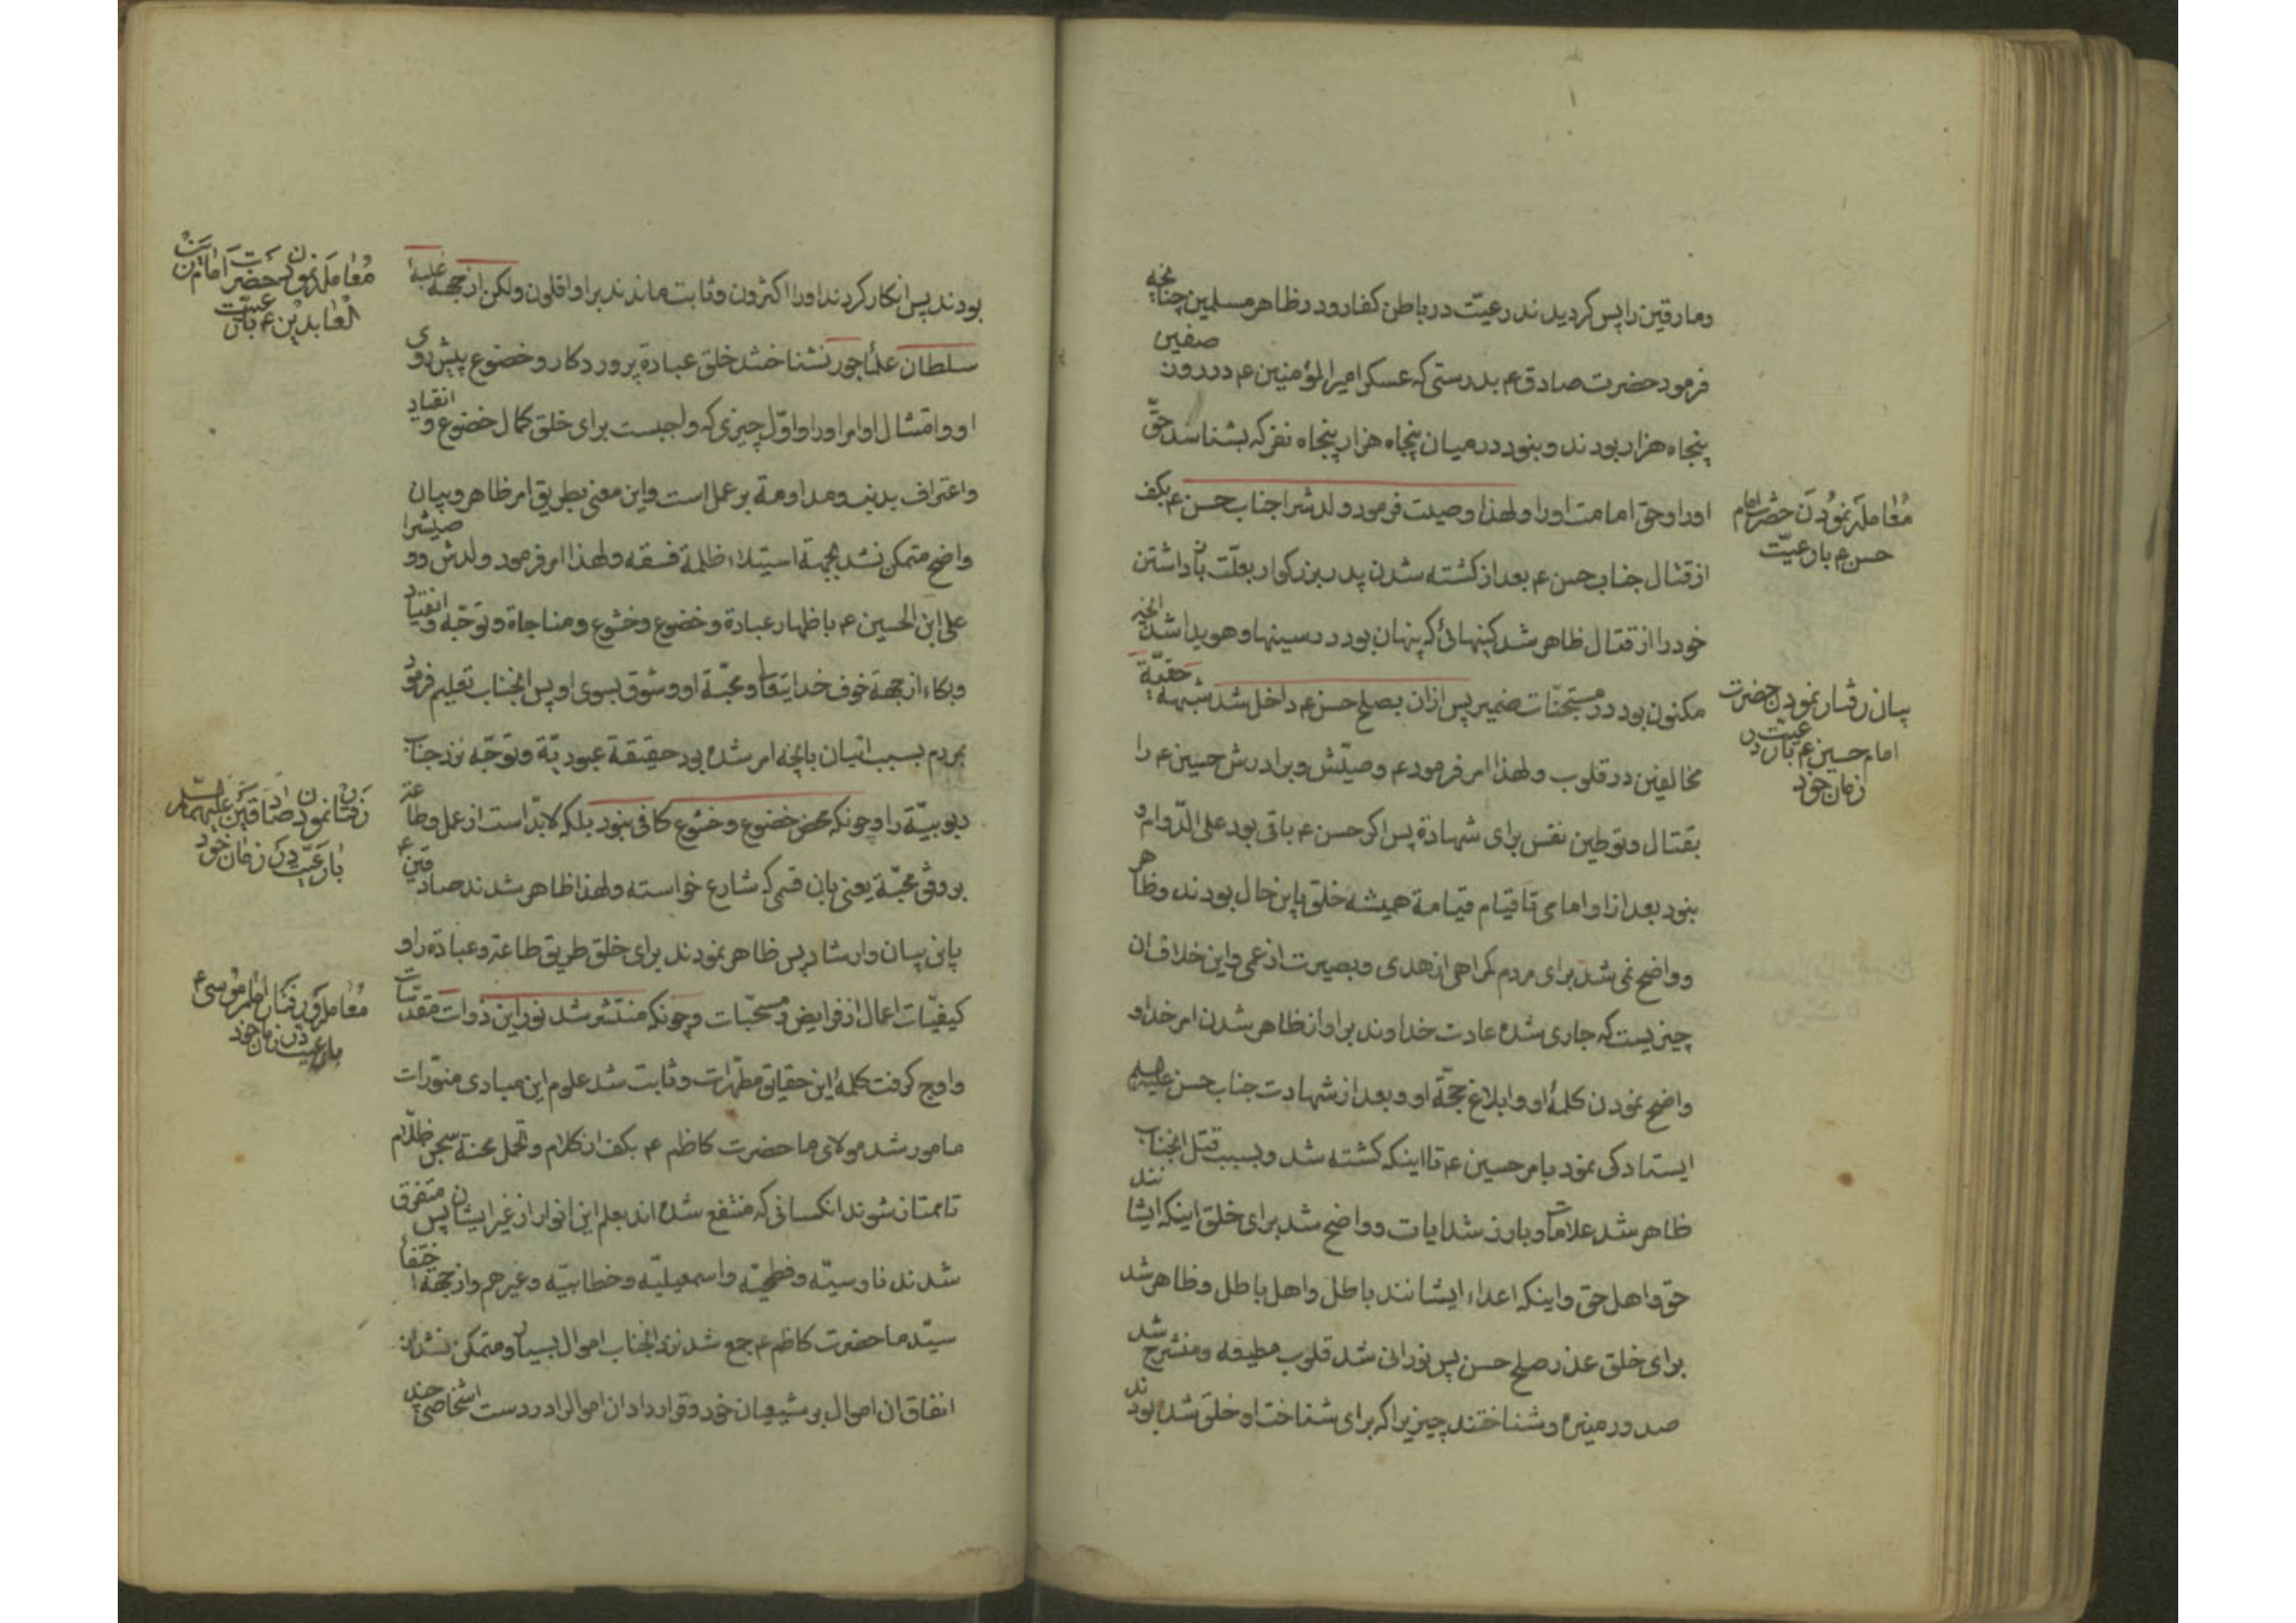 ومارقین را پس کردیدند رعیّت در باطن کفار و در ظاهر مسلمین چنانچه
فرمود حضرت صادق ع بدرستی که عسکر امیرالمؤمنین ع در روز صفین
پنجاه هزار بودند و نبود در میان پنجاه هزار پنجاه نفر که بشناسد حقّ
اورا و حق امامت اورا و لهذا وصیت فرمود ولدش را جناب حسن ع بکف
از قتال جناب حسن ع بعد از کشته شدن پدر بزرکوار بعلّت باز داشتن
خود را از قتال ظاهر شد کینهائی که پنهان بود در سینها و هویدا شد انچه
مکنون بود در مستجنّات ضمیر پس ازان بصلح حسن ع داخل شد شبهه حقیّة
مخالفین در قلوب و لهذا امر فرمود ع وصیّتش و برادرش حسین ع را
بقتال و توطین نفس برای شهادة پس اکر حسن ع باقی بود علی الدّوام و
نبود بعد از او امامی تا قیام قیامة همیشه خلق باین حال بودند و ظاهر
و واضح نمی شد برای مردم کمراهی از هدی و بصیرت از عمی و این خلاف ان
چیزیست که جاری شده عادت خداوند بر او از ظاهر شدن امر خدا و
واضح نمودن کلمهٔ او و ابلاغ حجّة او و بعد از شهادت جناب حسن علیه السلم
ایستادکی نمود بامر حسین ع تا اینکه کشته شد و بسبب قتل انجناب
ظاهر شد علامات و بارز شد ایات و واضح شد برای خلق اینکه ایشانند
حق و اهل حق و اینکه اعداء ایشانند باطل و اهل باطل و ظاهر شد
برای خلق عذر صلح حسن پس نورانی شد قلوب مطیعه و منشرح شد
صدور منیره و شناختند چیزیرا که برای شناخت او خلق شده بودند
معامله نمودن حضرت امام
حسن ع با رعیّت
بیان رفتار نمودن حضرت
امام حسین ع با رعیّت در
زمان خود
بودند پس انکار کردند اورا اکثرون و ثابت ماندند بر او اقلون ولکن از جهة غلبهٔ
سلطان علمأ جور نشناختند خلق عبادة پروردکار و خضوع پیش روی
او و امتثال اوامر اورا و اوّل چیزی که واجبست برای خلق کمال خضوع و انقیاد
و اعتراف بذنب و مداومة بر عمل است و این معنی بطریق امر ظاهر و بیان
واضح متمکن نشد بجهة استیلاء ظلمة فسقه و لهذا امر فرمود ولدش و وصیش را
علی ابن الحسین ع باظهار عبادة و خضوع و خشوع و مناجاة و توجّه و انقیاد
و بکاء از جهة خوف خدایتعالی و محبّة او و شوق بسوی او پس انجناب تعلیم فرمود
بمردم بسبب اتیان بانچه امر شده بود حقیقة عبودیّة و توجّه نزد جناب
ربوبیّة را و چونکه محض خضوع و خشوع کافی نبود بلکه لابدّ است از عمل و طاعة
بر وفق محبّة یعنی بان قسمی که شارع خواسته و لهذا ظاهر شدند صادقین ع
بانی بیان و ارشاد پس ظاهر نمودند برای خلق طریق طاعة و عبادة را و
کیفیّات اعمال از فرایض و مستحبّات و چونکه منتشر شد نور این ذوات مقدّسات
و اوج کرفت کلمهٔ این حقایق مطهّرات و ثابت شد علوم این مبادی منوّرات
مامور شد مولای ما حضرت کاظم ع بکف از کلام و تحمل محنة سجن ظلّام
تا ممتاز شوند انکسانی که منتفع شده اند بعلم این انوار از غیر ایشان پس متفرق
شدند ناوسیّه و فطحیّه و اسمعیلیّه و خطابیّه و غیرهم و از جهة اختفأ
سیّد ما حضرت کاظم ع جمع شد نزد انجناب اموال بسیار و متمکن نشد از
انفاق ان اموال بر شیعیان خود و قرار داد ان اموالرا در دست اشخاصی چند
معامله نمودن حضرت امام زین
العابدین ع با رعیّت
رفتار نمودن صادقین علیهما السلم
با رعیّت در زمان خود
معامله و رفتار امام موسی ع
با رعیت در زمان خود